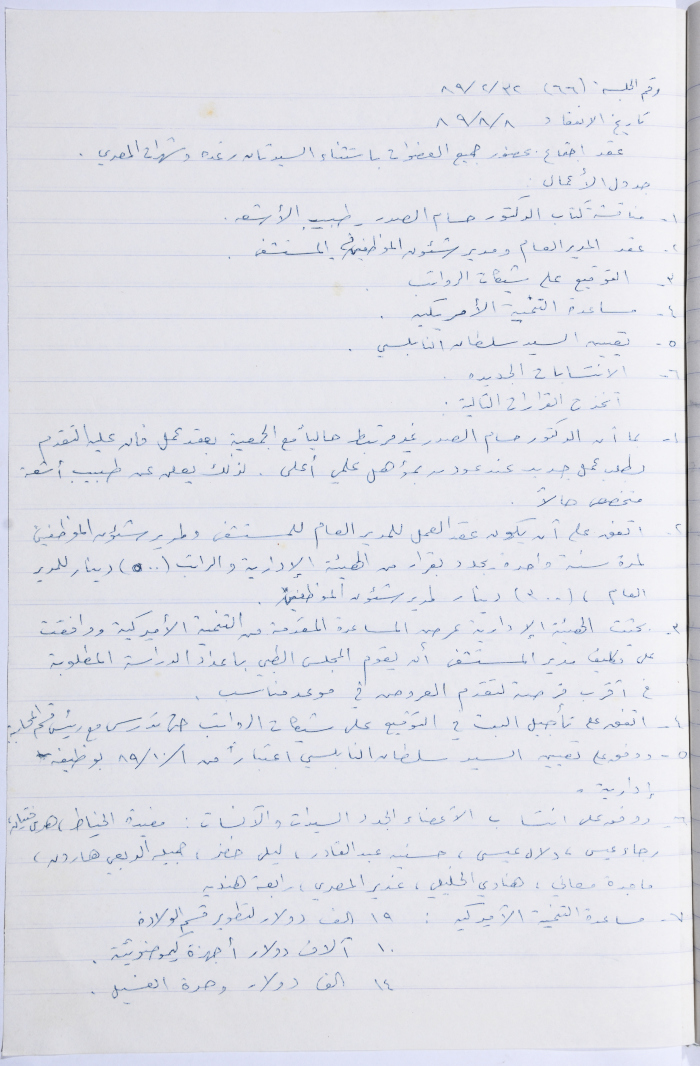 رقم الجلسة: (٦٦) ٨٩/٢/٣٢
تاريخ الانعقاد ٨٩/٨/٨
عقد اجتماع بحضور جميع العضوات باستثناء السيدتان رغده وشهرات المصري .
جدول الأعمال :
١- مناقشة كتاب الدكتور حسام الصدر - طبيب الأشعه .
٢- عقد المدير العام ومدير شئون الموظفين في المستشفى .
٣- التوقيع على شيكات الرواتب .
٤- مساعدة التنمية الأمريكيه .
٥- تعيين السيد سلطان النابلسي .
٦- الانتسابات الجديده .
اتخذت القرارات التالية :
١- بما أن الدكتور حسام الصدر غير مرتبط حالياً مع الجمعية بعقد عمل فان عليه التقدم
بطلب عمل جديد عند عودته بمؤهل علمي أعلى . لذلك يعلن عن طبيب أشعة
متخصص حالاً .
٢- اتفق على أن يكون عقد العمل للمدير العام للمستشفى ولمدير شئون الموظفين
لمدة سنة واحدة يجدد بقرار من الهيئة الإدارية والراتب (٥٠٠) دينار للمدير
العام ، (٣٠٠) دينار لمدير شئون الموظفين .
٣- بحثت الهيئة الإدارية عرض المساعدة المقدمة من التنمية الأميركية ووافقت
على تكليف مدير المستشفى أن يقوم المجلس الطبي باعداد الدراسة المطلوبة
في أقرب فرصة لتقدم العروض في موعد مناسب .
٤- اتفق على تأجيل البت في التوقيع على شيكات الرواتب حتى تدرس مع رئيس قسم المحاسبة
٥- ووفق على تعيين السيد سلطان النابلسي اعتباراً من ٨٩/١٠/١ بوظيفة
إدارية .
٦- ووفق على انتساب الأعضاء الجدد السيدات والآنسات : مفيدة الخياط، هدى
رجاء عيسى ، دلال عيسى ، حسنيه عبد القادر ، ليلى خضر ، جميله الربعي هارون ،
ماجدة معاني ، هنادي الخليلي ، غدير المصري ، رابعة هنديه
٧- مساعدة التنمية الأميركيه : ١٩ الف دولار لتطوير قسم الولادة
١٠ آلاف دولار أجهزة كيموضوئية .
١٤ الف دولار وحدة الغسيل .